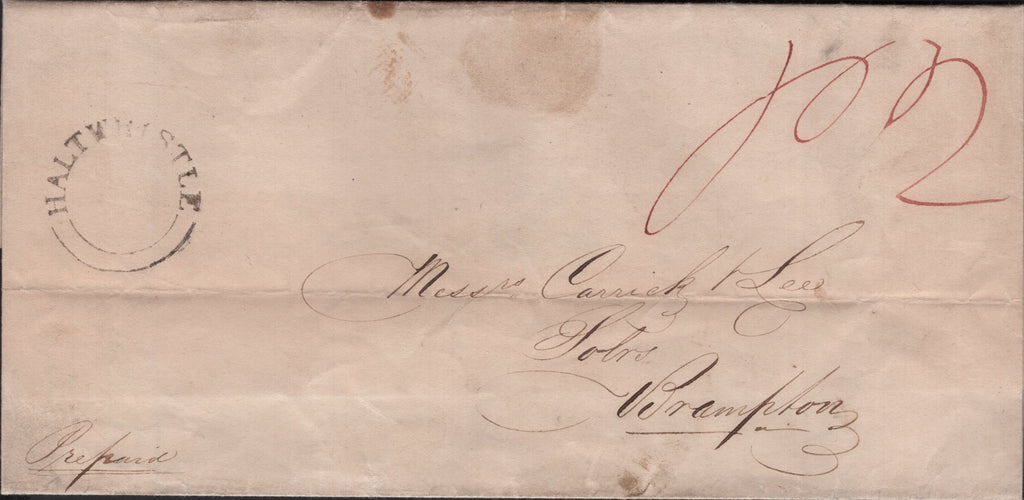 HALTWHISTLE
Messrs Carrick & Lee
Solrs
Brampton
Prepaid